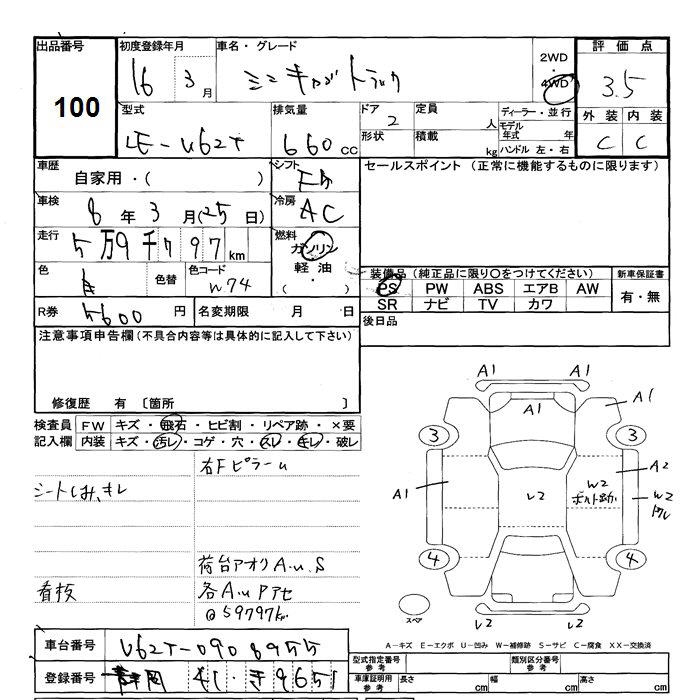 出品番号 初度登録年月 車名・グレード 2WD 評価点
16 3 月 ミニキャブトラック 4WD 3.5
100
型式 排気量 ドア 2 定員 人 ディーラー・並行 外装 内装
LE-U62T 660 cc 形状 積載 kg モデル年式 年 C C
ハンドル 左・右
車歴 自家用・( ) シフト F5 セールスポイント (正常に機能するものに限ります)
車検 8 年 3 月 (25 日) 冷房 AC
走行 5万9千797 km 燃料 ガソリン
軽油・( )
色 白 色替 色コード W74 装備品 (純正品に限り○をつけてください) 新車保証書
PS PW ABS エアB AW 有・無
SR ナビ TV カワ
R券 5600 円 名変期限 月 日 後日品
注意事項申告欄(不具合内容等は具体的に記入して下さい)
修復歴 有 〔箇所 〕
検査員 FW キズ・飛石・ヒビ割・リペア跡・×要
記入欄 内装 キズ・汚レ・コゲ・穴・スレ・キレ・破レ
右FピラーU
シートしみ、キレ
荷台アオリA.U.S
看板 各A.Uアセ
@59797km
A1
A1 A1
3 3
A2
A1 U2 W2 ボルト跡 W2
4 4
スペア U2 U2
A-キズ E-エクボ U-凹み W-補修跡 S-サビ C-腐食 XX-交換済
車台番号 U62T-0908955
型式指定番号 参考 類別区分番号 参考
登録番号 静岡 41・き9651
車庫証明用 参考 長さ cm 幅 cm 高さ cm